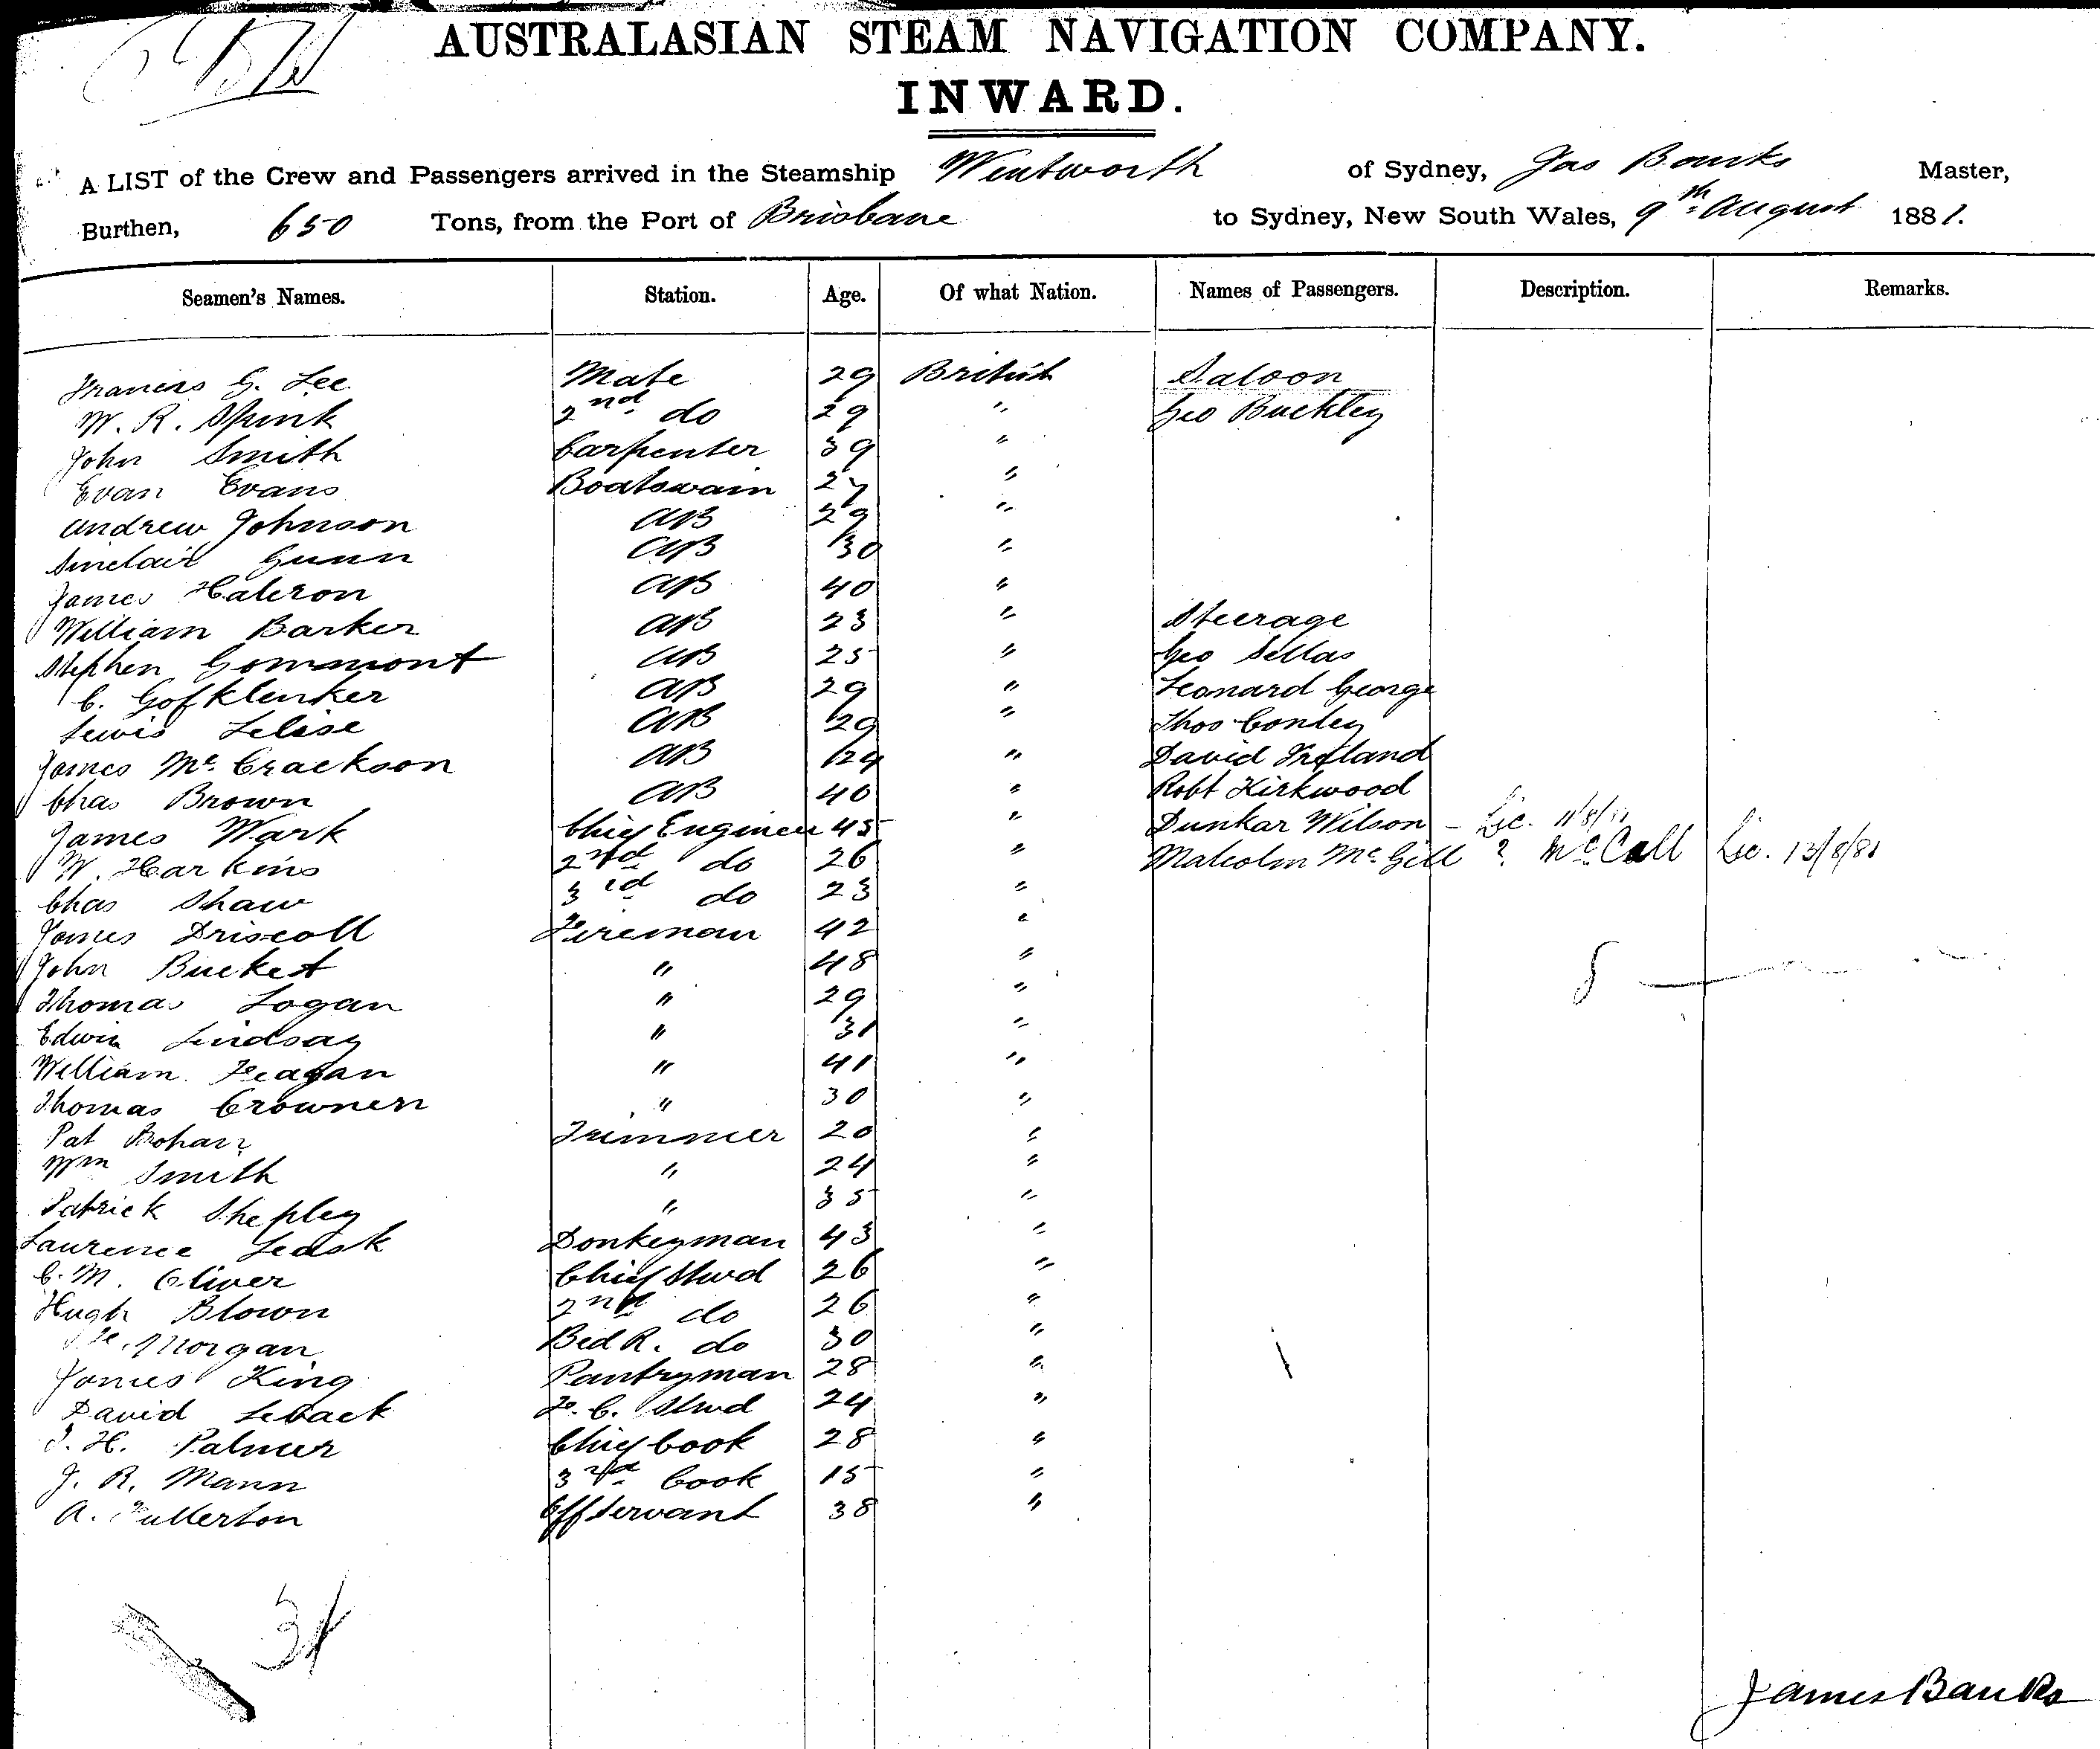 AUSTRALASIAN STEAM NAVIGATION COMPANY.
INWARD.
A LIST of the Crew and Passengers arrived in the Steamship Wentworth of Sydney, Jas Banks Master,
Burthen, 650 Tons, from the Port of Brisbane to Sydney, New South Wales, 9th August 1881.
Seamen's Names. Station. Age. Of what Nation. Names of Passengers. Description. Remarks.
Francis G. Lee Mate 29 British Saloon
W. R. Spink 2nd do 29 " Geo Buckley
John Smith Carpenter 39 "
Evan Evans Boatswain 27 "
Andrew Johnson AB 29 "
Sinclair Gunn AB 30 "
James Halcron AB 40 "
William Barker AB 23 " Steerage
Stephen Gommont AB 25 " Geo Sellas
C. Gofklenker AB 29 " Leonard George
Lewis Lelise AB 29 " Thos Conley
James McCrackson AB 24 " David Ireland
Chas Brown AB 40 " Robt Kirkwood
James Wark Chief Engineer 45 " Dunkar Wilson - Lic. 11/8/81
W. Harkins 2nd do 26 " Malcolm McGill ? McCall Lic. 13/8/81
Chas Shaw 3rd do 23 "
James Driscoll Fireman 42 "
John Bucket " 48 "
Thomas Logan " 29 "
Edwin Lindsay " 31 "
William Feagan " 41 "
Thomas Crownen " 30 "
Pat Bohan Trimmer 20 "
Wm Smith " 24 "
Patrick Shepley " 35 "
Laurence Leask Donkeyman 43 "
C. M. Oliver Chief Stwd 26 "
Hugh Blown 2nd do 26 "
Morgan Bed R. do 30 "
James King Pantryman 28 "
David Leback F. C. Stwd 24 "
J. H. Palmer Chief Cook 28 "
J. R. Mann 3rd Cook 15 "
A. Fullerton Off Servant 38 "
34
James Banks